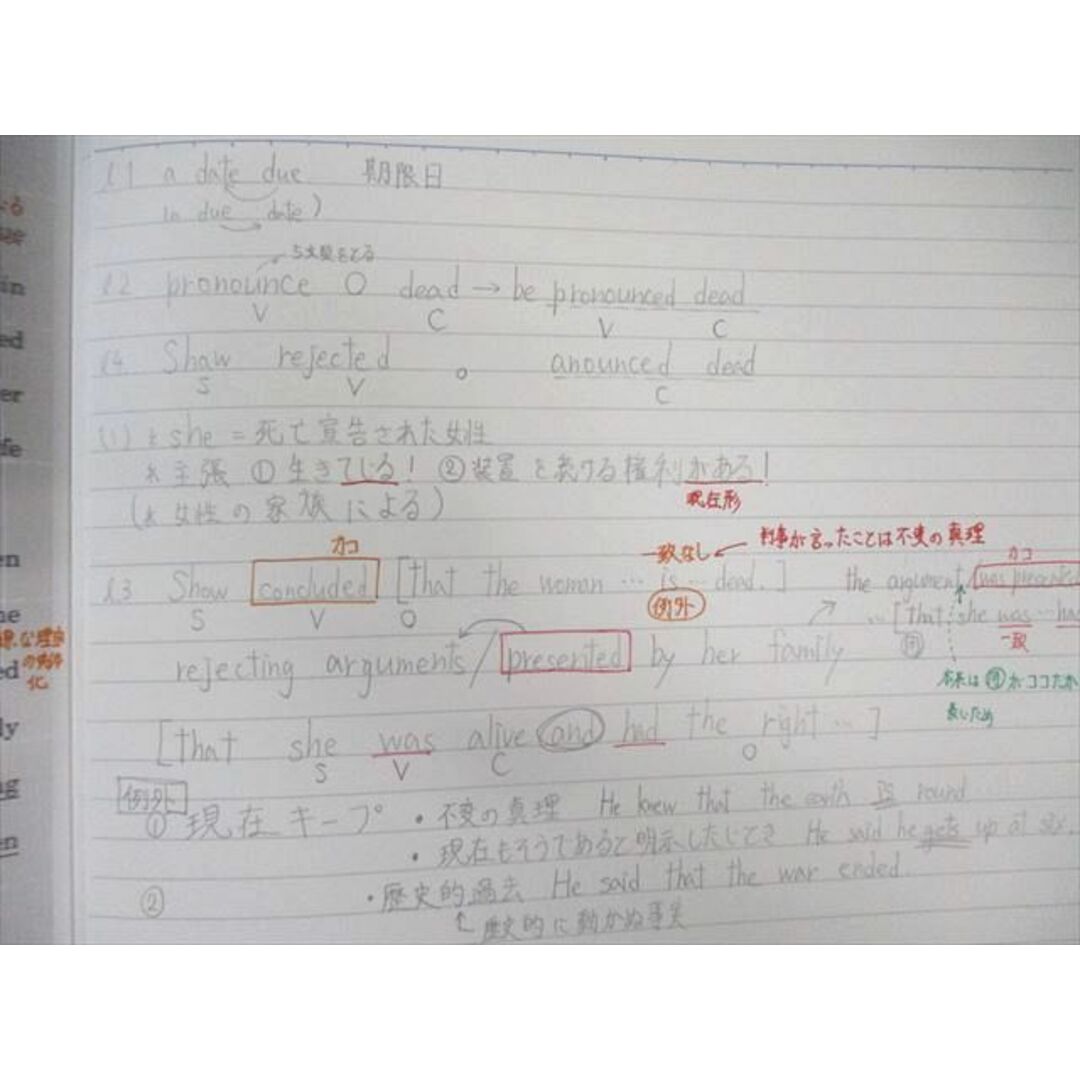 l.1 a date due 期限日
in due date)
5文型をとる
l.2 pronounce O dead → be pronounced dead
V C V C
l.4 Shaw rejected o anounced dead
S V C
(1) * she = 死亡宣告された女性
* 主張 ① 生きている! ② 装置を続ける権利がある!
現在形
(* 女性の家族による)
カコ 一致なし ← 判事が言ったことは不変の真理
カコ
l.3 Shaw concluded [that the woman … is … dead.] the argument was presented
S V O 例外 … [that she was … had
同 一致
rejecting arguments / presented by her family
本来は 同
長いため
[that she was alive and had the right … ]
S V C O
例外
① 現在キープ ・不変の真理 He knew that the earth is round
・現在もそうであると明示したいとき He said he gets up at six.
② ・歴史的過去 He said that the war ended.
↑ 歴史的に動かぬ事実
な理由
化
in
ed
er
fe
en
he
ed
ly
ng
en